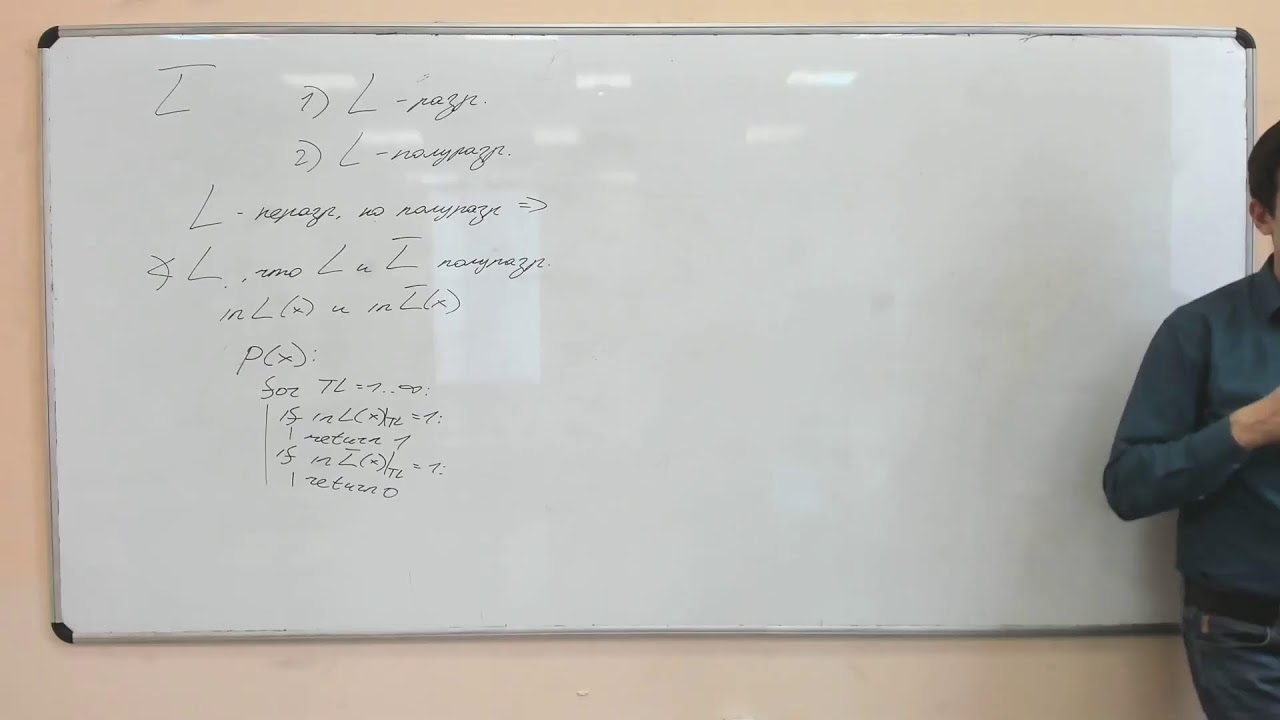 L̅ 1) L - разр.
2) L - полуразр.
L - неразр, но полуразр =>
∢ L, что L и L̅ полуразр.
inL(x) и inL̅(x)
p(x):
for TL = 1..∞:
if inL(x)|TL = 1:
return 1
if inL̅(x)|TL = 1:
return 0